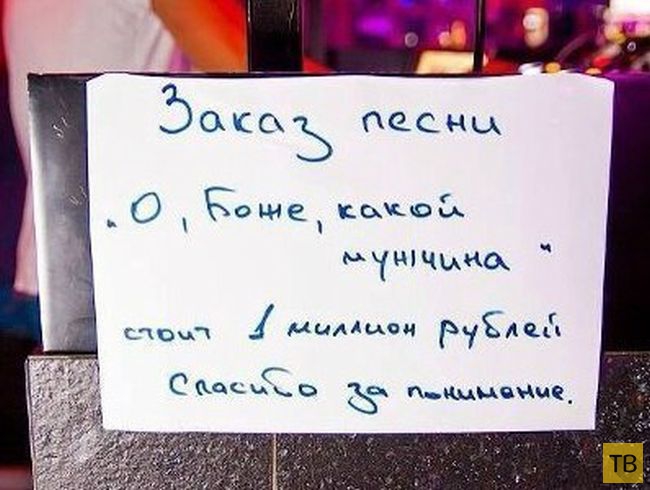 Заказ песни
„О, Боже, какой
мужчина"
стоит 1 миллион рублей
Спасибо за понимание.
ТВ